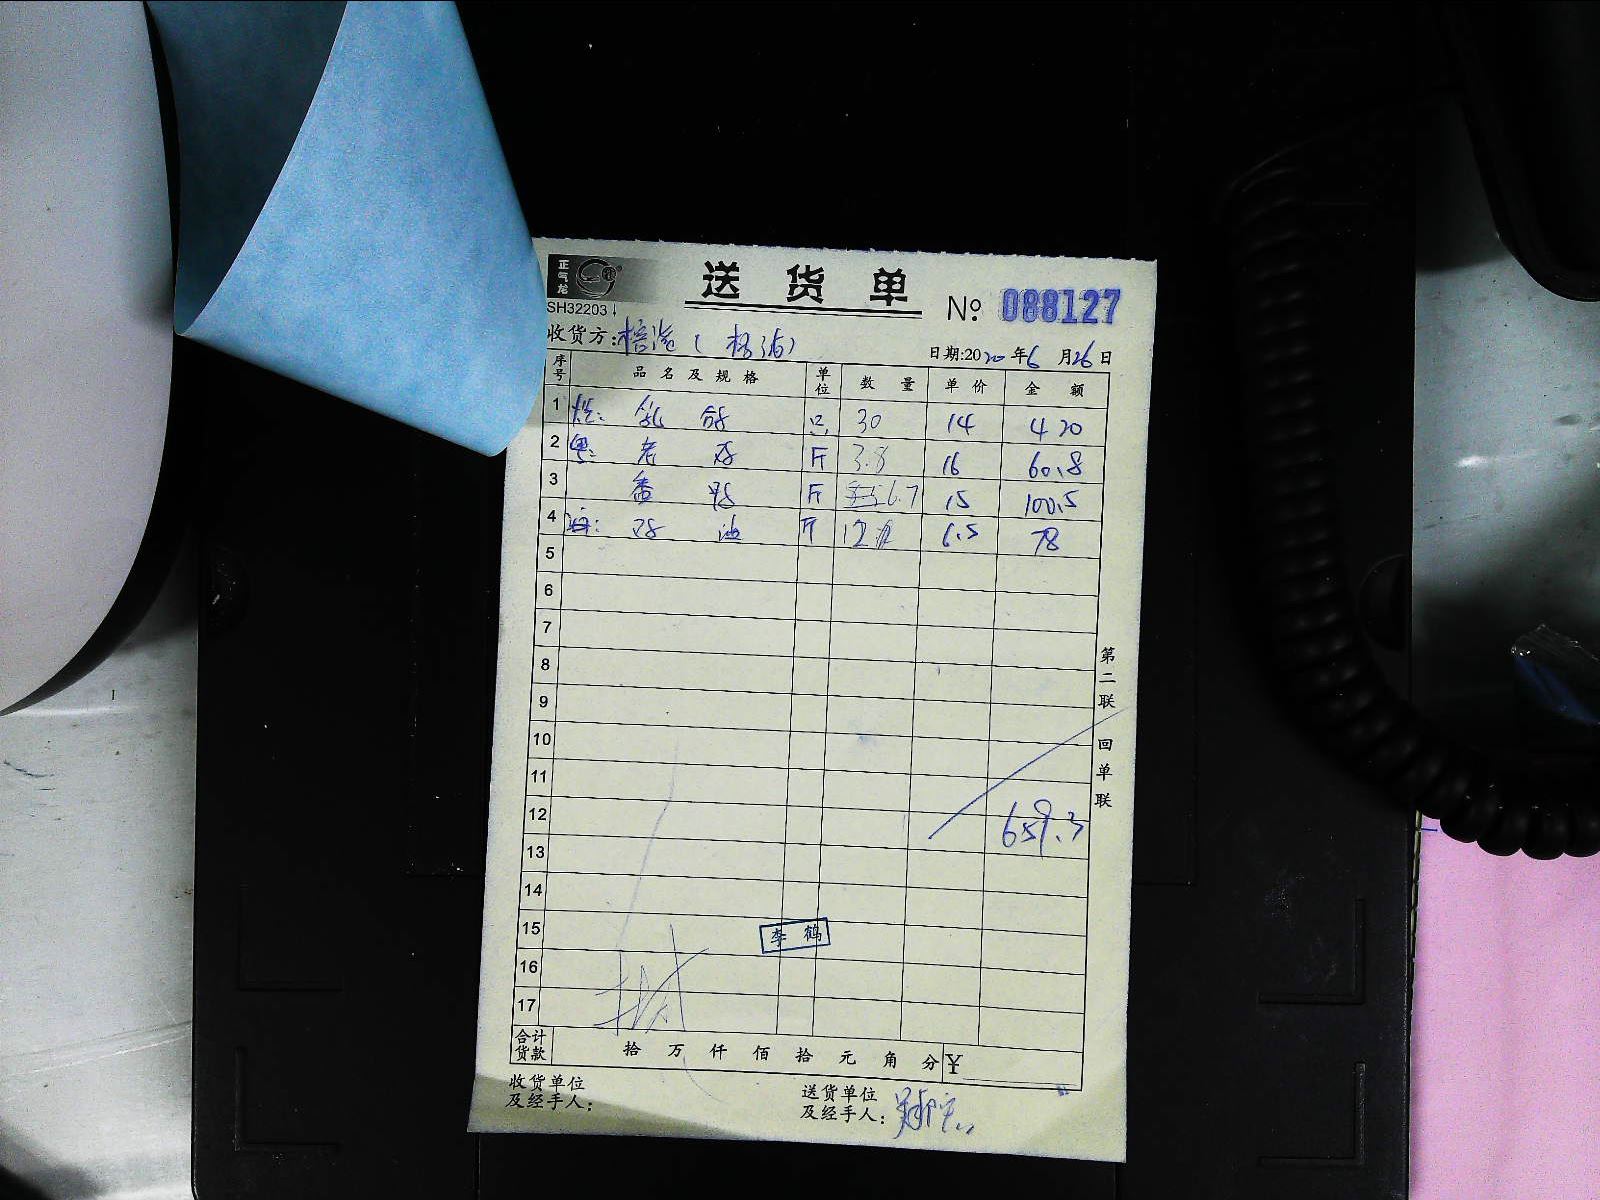 正气龙
送货单
SH32203
№ 088127
收货方:
日期:2020年6月26日
序号 品名及规格 单位 数量 单价 金额
1 乳鸽 只 30 14 420
2 老 斤 3.8 16 60.8
3 番鸭 斤 6.7 15 100.5
4 油 斤 12 6.5 78
5
6
7
8
9
10
11
12 659.3
13
14
15 李鹤
16
17
合计货款 拾 万 仟 佰 拾 元 角 分 ¥
收货单位及经手人:
送货单位及经手人:
第二联 回单联